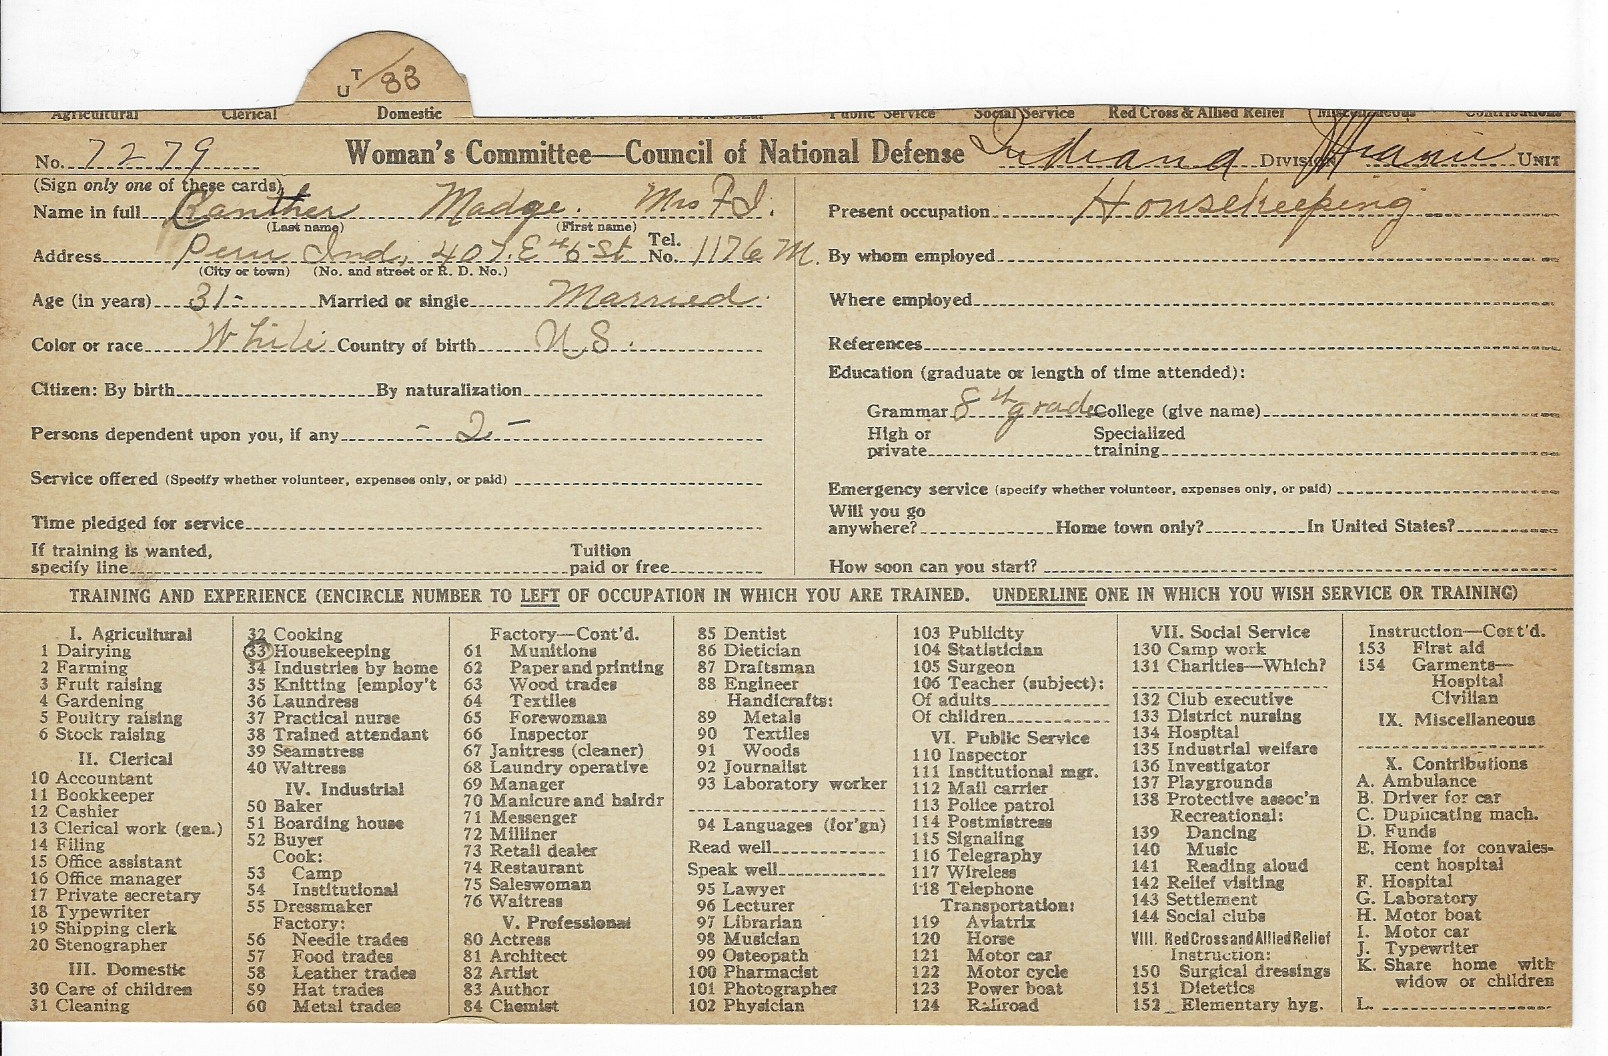 T
U / 33
Agricultural Clerical Domestic Public Service Social Service Red Cross & Allied Relief Miscellaneous Contributions
No. 7279 Woman's Committee—Council of National Defense Indiana DIVISION UNIT
(Sign only one of these cards)
Name in full Madge. Mrs F I.
(Last name) (First name)
Address Peru Ind, 407. E 6 St Tel. No. 1176 M.
(City or town) (No. and street or R. D. No.)
Age (in years) 31- Married or single Married
Color or race White Country of birth U S.
Citizen: By birth By naturalization
Persons dependent upon you, if any - 2 -
Service offered (Specify whether volunteer, expenses only, or paid)
Time pledged for service
If training is wanted, specify line Tuition paid or free
Present occupation Housekeeping
By whom employed
Where employed
References
Education (graduate or length of time attended):
Grammar 8th grade College (give name)
High or private Specialized training
Emergency service (specify whether volunteer, expenses only, or paid)
Will you go anywhere? Home town only? In United States?
How soon can you start?
TRAINING AND EXPERIENCE (ENCIRCLE NUMBER TO LEFT OF OCCUPATION IN WHICH YOU ARE TRAINED. UNDERLINE ONE IN WHICH YOU WISH SERVICE OR TRAINING)
I. Agricultural
1 Dairying
2 Farming
3 Fruit raising
4 Gardening
5 Poultry raising
6 Stock raising
II. Clerical
10 Accountant
11 Bookkeeper
12 Cashier
13 Clerical work (gen.)
14 Filing
15 Office assistant
16 Office manager
17 Private secretary
18 Typewriter
19 Shipping clerk
20 Stenographer
III. Domestic
30 Care of children
31 Cleaning
32 Cooking
33 Housekeeping
34 Industries by home
35 Knitting [employ't
36 Laundress
37 Practical nurse
38 Trained attendant
39 Seamstress
40 Waitress
IV. Industrial
50 Baker
51 Boarding house
52 Buyer
Cook:
53 Camp
54 Institutional
55 Dressmaker
Factory:
56 Needle trades
57 Food trades
58 Leather trades
59 Hat trades
60 Metal trades
Factory—Cont'd.
61 Munitions
62 Paper and printing
63 Wood trades
64 Textiles
65 Forewoman
66 Inspector
67 Janitress (cleaner)
68 Laundry operative
69 Manager
70 Manicure and hairdr
71 Messenger
72 Milliner
73 Retail dealer
74 Restaurant
75 Saleswoman
76 Waitress
V. Professional
80 Actress
81 Architect
82 Artist
83 Author
84 Chemist
85 Dentist
86 Dietician
87 Draftsman
88 Engineer
Handicrafts:
89 Metals
90 Textiles
91 Woods
92 Journalist
93 Laboratory worker
94 Languages (for'gn)
Read well
Speak well
95 Lawyer
96 Lecturer
97 Librarian
98 Musician
99 Osteopath
100 Pharmacist
101 Photographer
102 Physician
103 Publicity
104 Statistician
105 Surgeon
106 Teacher (subject):
Of adults
Of children
VI. Public Service
110 Inspector
111 Institutional mgr.
112 Mail carrier
113 Police patrol
114 Postmistress
115 Signaling
116 Telegraphy
117 Wireless
118 Telephone
Transportation:
119 Aviatrix
120 Horse
121 Motor car
122 Motor cycle
123 Power boat
124 Railroad
VII. Social Service
130 Camp work
131 Charities—Which?
132 Club executive
133 District nursing
134 Hospital
135 Industrial welfare
136 Investigator
137 Playgrounds
138 Protective assoc'n
Recreational:
139 Dancing
140 Music
141 Reading aloud
142 Relief visiting
143 Settlement
144 Social clubs
VIII. Red Cross and Allied Relief
Instruction:
150 Surgical dressings
151 Dietetics
152 Elementary hyg.
Instruction—Cont'd.
153 First aid
154 Garments—
Hospital
Civilian
IX. Miscellaneous
X. Contributions
A. Ambulance
B. Driver for car
C. Duplicating mach.
D. Funds
E. Home for convales-
cent hospital
F. Hospital
G. Laboratory
H. Motor boat
I. Motor car
J. Typewriter
K. Share home with
widow or children
L.